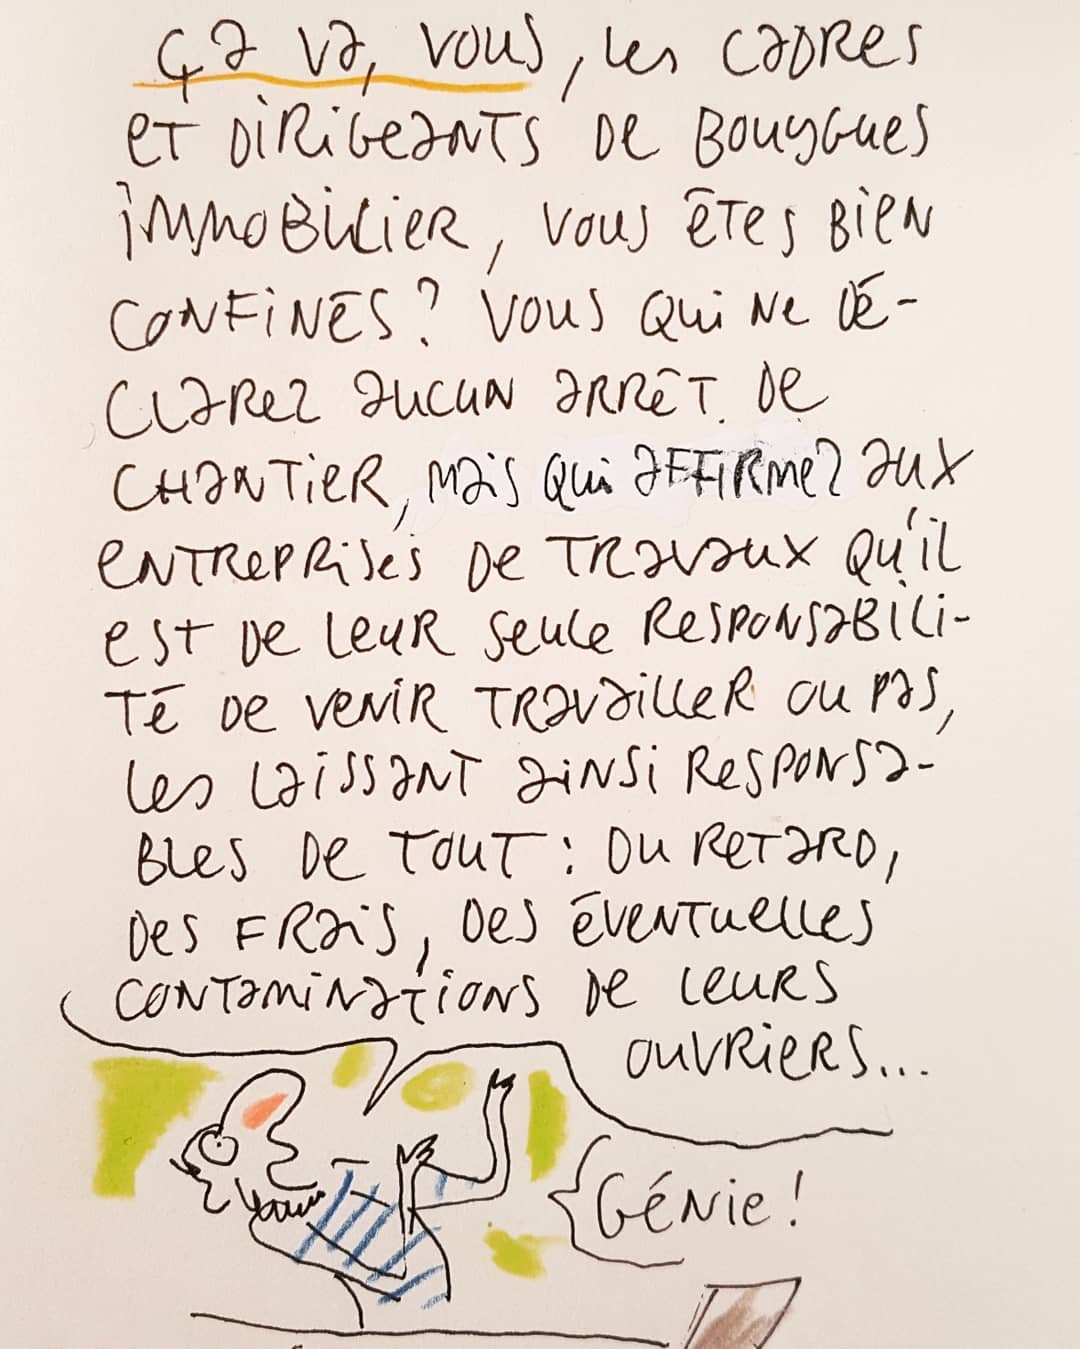 ça va, vous, les cadres
et dirigeants de Bouygues
immobilier, vous êtes bien
confinés? Vous qui ne dé-
clarez aucun arrêt de
chantier, mais qui affirmez aux
entreprises de travaux qu'il
est de leur seule responsabili-
té de venir travailler ou pas,
les laissant ainsi responsa-
bles de tout : du retard,
des frais, des éventuelles
contaminations de leurs
ouvriers...
Génie!